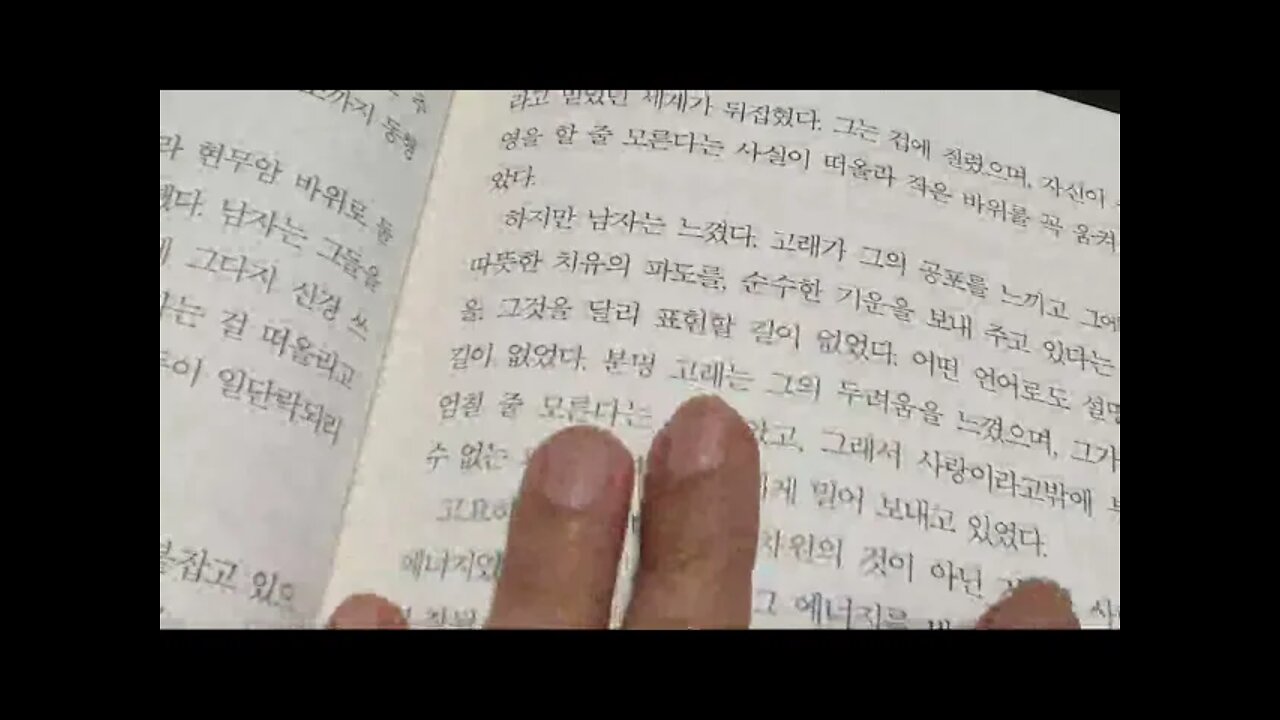 까지 동행
현무암 바위로 돌
남자는 그들을
그다지 신경 쓰
는 걸 떠올리고
이 일단락되리
붙잡고 있으
라고 믿었던 세계가 뒤집혔다. 그는 겁에 질렸으며, 자신이
영을 할 줄 모른다는 사실이 떠올라 작은 바위를 꼭 움켜
았다.
하지만 남자는 느꼈다. 고래가 그의 공포를 느끼고 그에
따뜻한 치유의 파도를, 순수한 기운을 보내 주고 있다는
을. 그것을 달리 표현할 길이 없었다. 어떤 언어로도 설명
길이 없었다. 분명 고래는 그의 두려움을 느꼈으며, 그가
엄칠 줄 모른다는 알았고, 그래서 사랑이라고밖에
수 없는 밀어 보내고 있었다.
에너지였 차원의 것이 아닌
그 에너지를